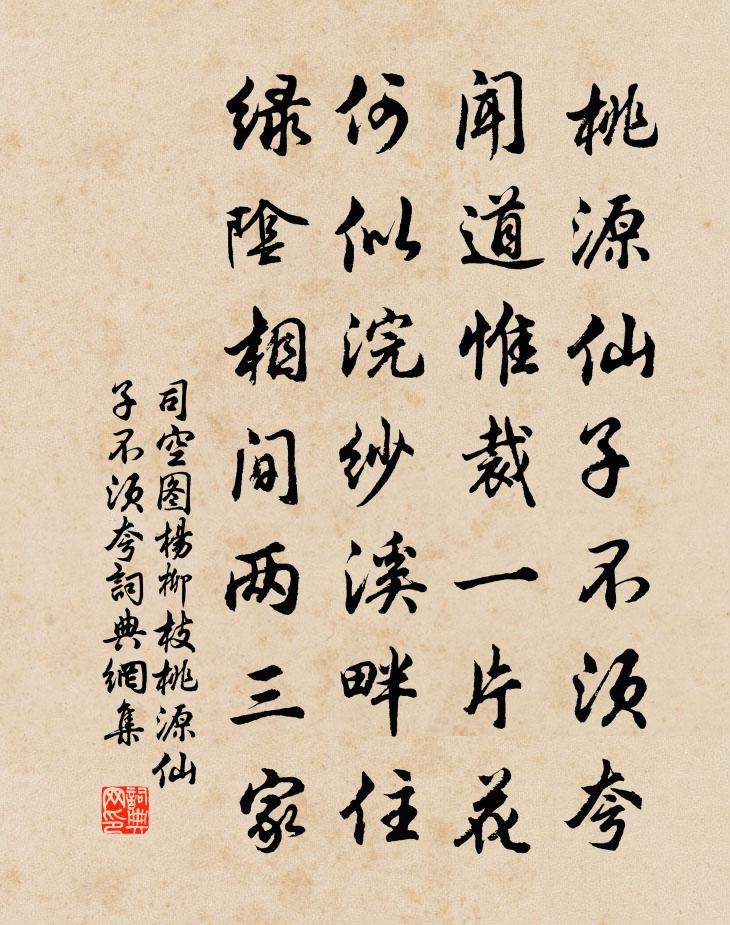 桃源仙子不须夸
闻道惟裁一片花
何似浣纱溪畔住
绿阴相间两三家
司空图杨柳枝桃源仙
子不须夸词典网集
詞典网印